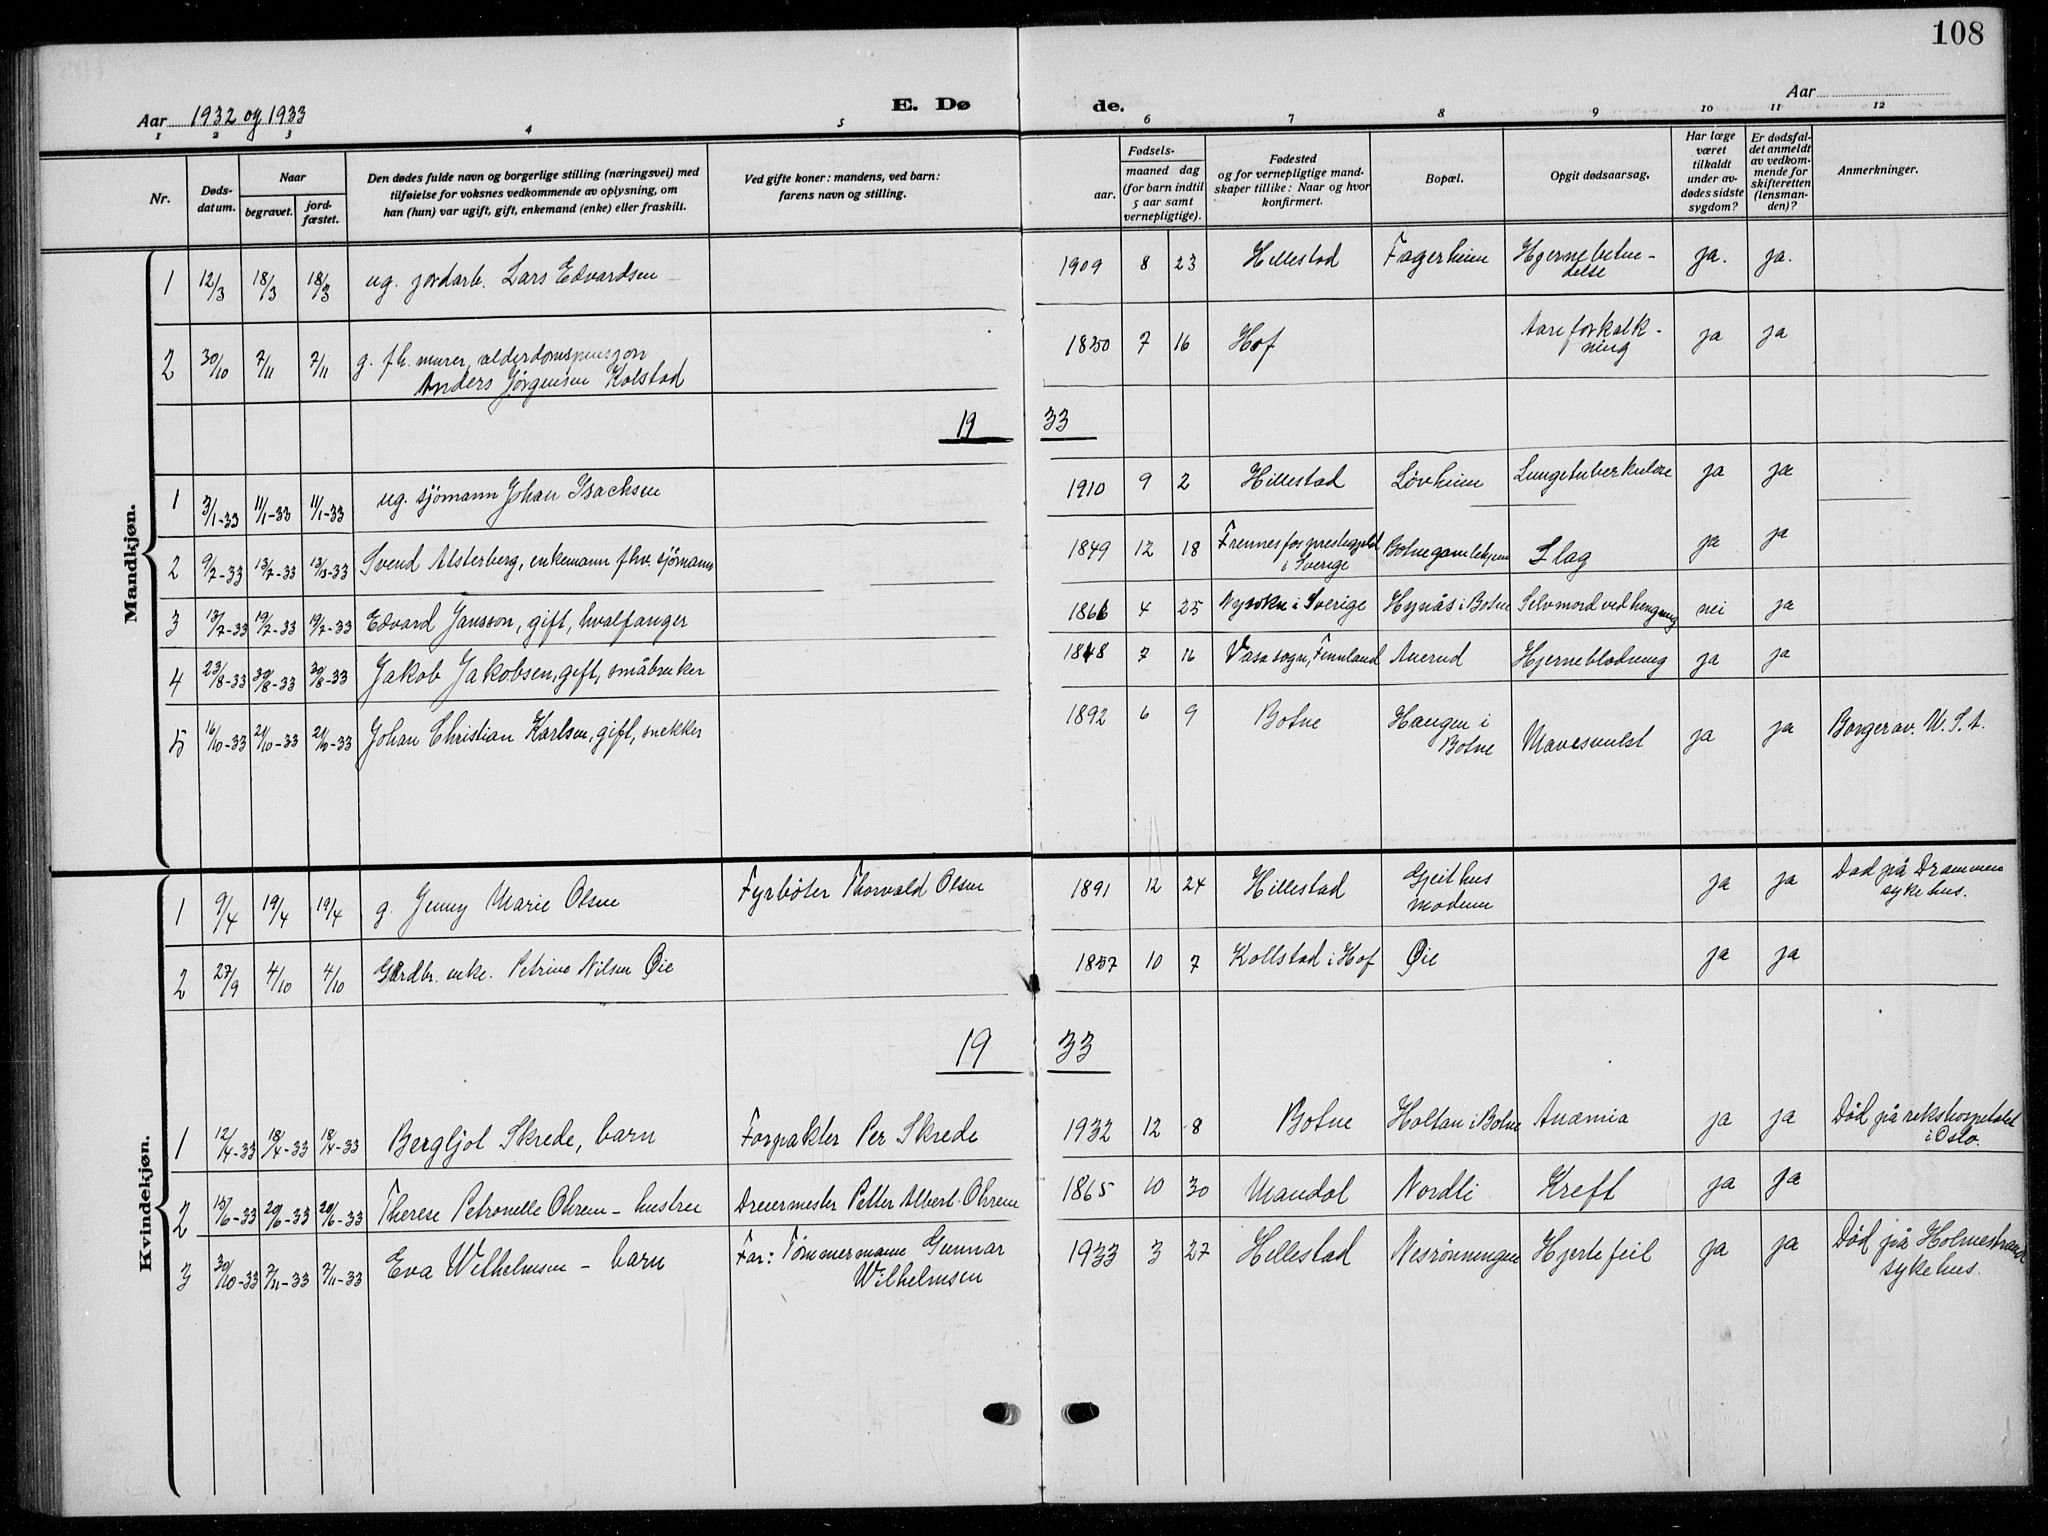 108
Aar 1932 og 1933 E. Dø de. Aar
1 2 3 4 5 6 7 8 9 10 11 12
Nr.
Døds-
datum.
Naar
begravet.
jord-
fæstet.
Den dødes fulde navn og borgerlige stilling (næringsvei) med
tilføielse for voksnes vedkommende av oplysning, om
han (hun) var ugift, gift, enkemand (enke) eller fraskilt.
Ved gifte koner: mandens, ved barn:
farens navn og stilling.
Fødsels-
aar.
maaned dag
(for barn indtil
5 aar samt
vernepligtige).
Fødested
og for vernepligtige mand-
skaper tillike: Naar og hvor
konfirmert.
Bopæl.
Opgit dødsaarsag.
Har læge
været
tilkaldt
under av-
dødes sidste
sygdom?
Er dødsfal-
det anmeldt
av vedkom-
mende for
skifteretten
(lensman-
den)?
Anmerkninger.
Mandkjøn.
1 12/3 18/3 18/3 ug. jordarb. Lars Edvardsen 1909 8 23 Hillestad Fagerheim Hjernebetæn-
delse ja. ja.
2 30/10 7/11 7/11 g. fh. murer, alderdomspensjon
Anders Jørgensen Kolstad 1850 7 16 Hof Aareforkalk-
ning ja ja
19 33
1 3/1-33 11/1-33 11/1-33 ug. sjømann Johan Isachsen 1910 9 2 Hillestad Løvheim Lungetuberkulose ja ja
2 9/7-33 13/7-33 13/7-33 Svend Alsterberg, enkemann fhv. sjømann 1849 12 18 prestegjeld
i Sverige Botne gamlehjem Slag ja ja
3 13/7-33 19/7-33 19/7-33 Edvard Jansson, gift, hvalfanger 1866 4 25 Nysokn i Sverige Hynås i Botne Selvmord ved hengning nei ja
4 23/8-33 30/8-33 30/8-33 Jakob Jakobsen, gift, småbruker 1848 7 16 Vasa sogn, Finnland Auerud Hjerneblødning ja ja
5 16/10-33 21/10-33 21/10-33 Johan Christian Karlsen, gift, snekker 1892 6 9 Botne Haugen i
Botne Mavesvulst ja ja Borger av. U.S.A.
Kvindekjøn.
1 9/4 19/4 19/4 g. Jenny Marie Olsen Fyrbøter Thorvald Olsen 1891 12 24 Hillestad Gjeithus
Modum ja ja Død på Drammen
sykehus.
2 27/9 4/10 4/10 Gårdbr. enke. Petrine Nilsen Øie 1857 10 7 Kollstad i Hof Øie ja ja
19 33
1 12/4-33 18/4-33 18/4-33 Bergljot Skrede, barn Forpakter Per Skrede 1932 12 8 Botne Holtan i Botne Anæmia ja ja Død på rikshospitalet
i Oslo.
2 15/6-33 20/6-33 20/6-33 Therese Petronelle Ohrem - hustru Dreiermester Petter Albert Ohrem 1865 10 30 Mandal Nordli Kreft ja ja
3 30/10-33 7/11-33 7/11-33 Eva Wilhelmsen - barn Far: Tømmermann Gunnar
Wilhelmsen 1933 3 27 Hillestad Nesrønningen Hjertefeil ja ja Død på Holmestrand
sykehus.